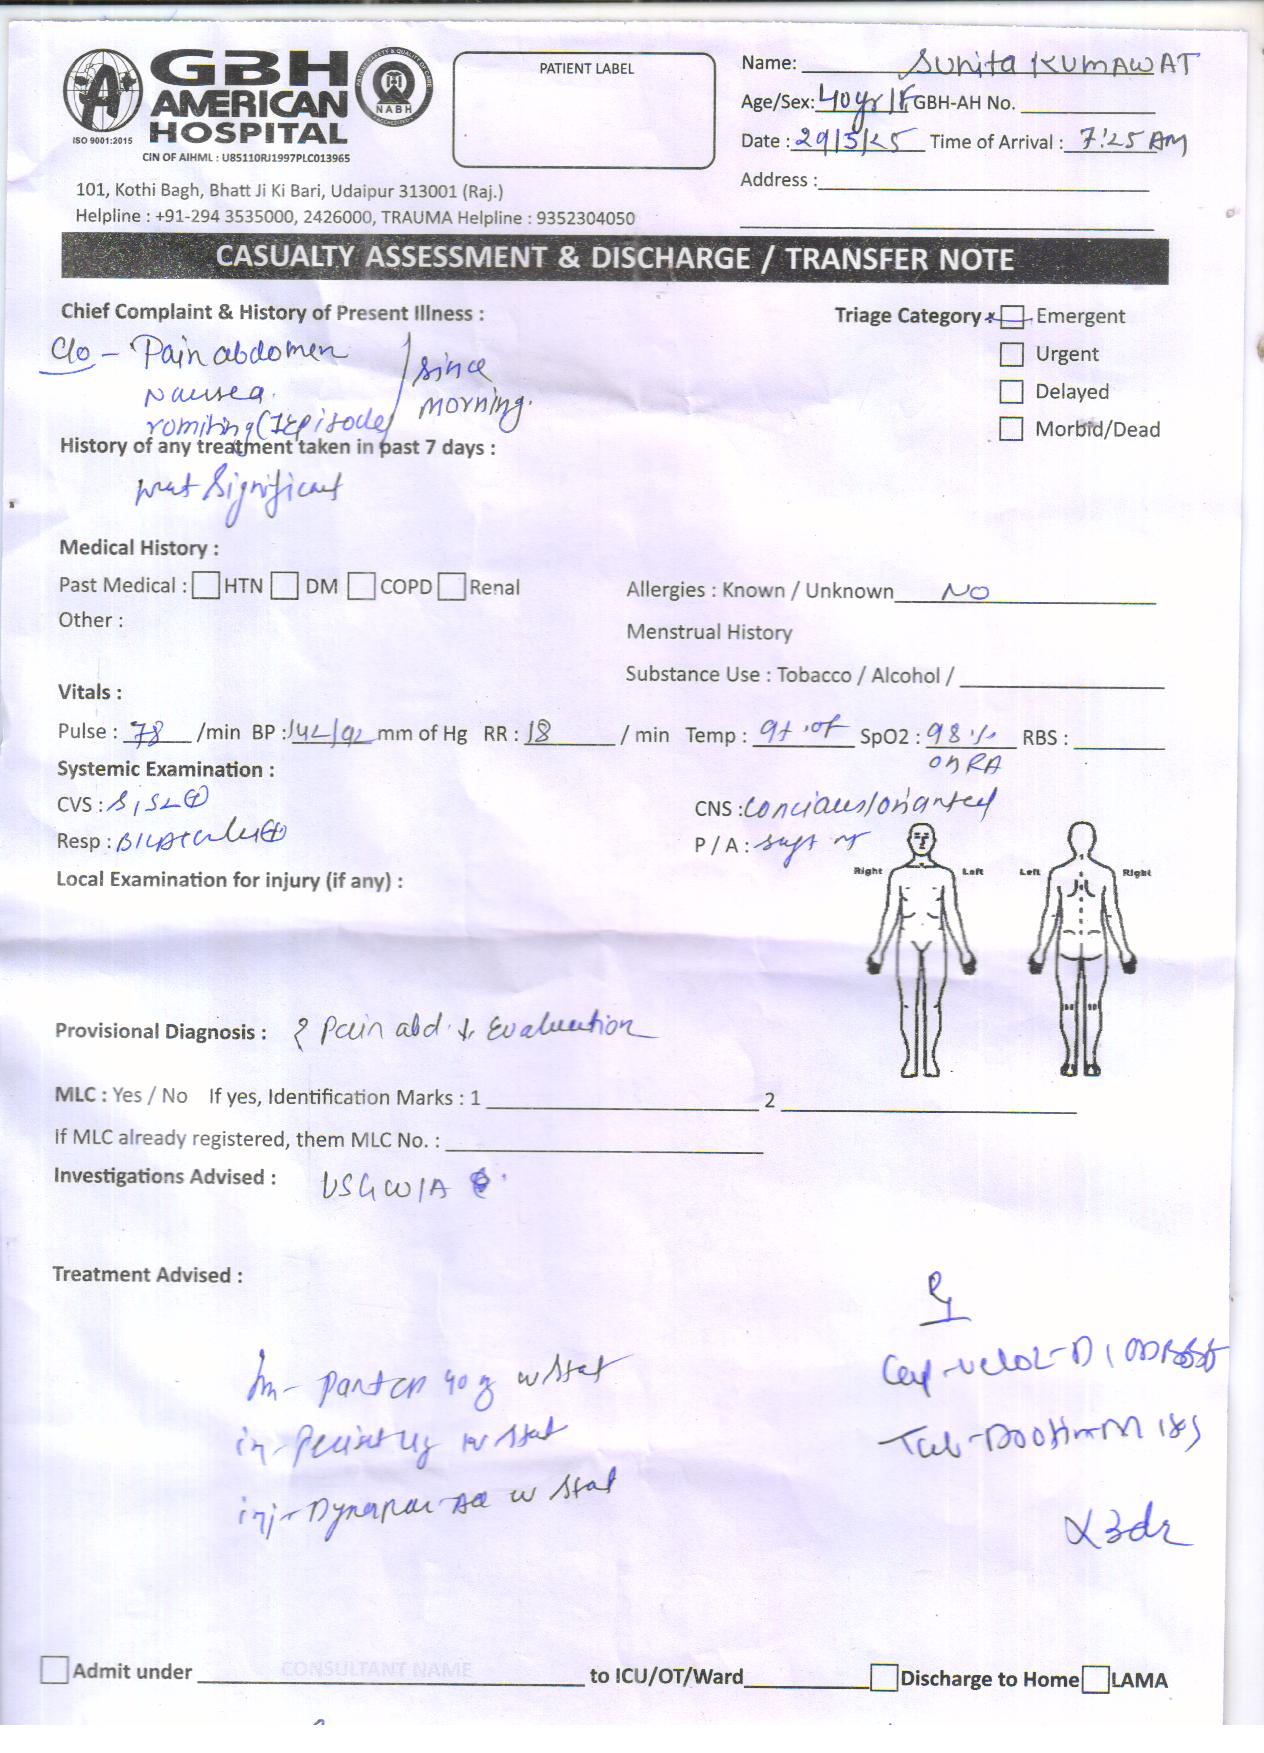 GBH
AMERICAN
HOSPITAL
ISO 9001:2015
NABH
CIN OF AIHML : U85110RJ1997PLC013965
101, Kothi Bagh, Bhatt Ji Ki Bari, Udaipur 313001 (Raj.)
Helpline : +91-294 3535000, 2426000, TRAUMA Helpline : 9352304050
PATIENT LABEL
Name: Sunita KUMAWAT
Age/Sex: 40yr/F GBH-AH No.
Date : 29/5/25 Time of Arrival : 7:25 AM
Address :
CASUALTY ASSESSMENT & DISCHARGE / TRANSFER NOTE
Chief Complaint & History of Present Illness :
C/o - Pain abdomen
nausea
vomiting (1 episode)
since
morning.
Triage Category Emergent
Urgent
Delayed
Morbid/Dead
History of any treatment taken in past 7 days :
not significant
Medical History :
Past Medical : HTN DM COPD Renal
Other :
Allergies : Known / Unknown NO
Menstrual History
Substance Use : Tobacco / Alcohol /
Vitals :
Pulse : 78 /min BP : 142/92 mm of Hg RR : 18 / min Temp : SpO2 : 98 % RBS :
on RA
Systemic Examination :
CVS : S1S2 ⊕
CNS : concious/oriented
Resp :
P / A : soft
Local Examination for injury (if any) :
Right Left Left Right
Provisional Diagnosis : ? Pain abd ↓ Evaluation
MLC : Yes / No If yes, Identification Marks : 1 2
If MLC already registered, them MLC No. :
Investigations Advised : USG W/A
Treatment Advised :
Rx
inj- 40 iv stat
inj- iv stat
inj- Dynapar AQ iv stat
Cap- -D 1 OD
Tab- -M
x 3d
Admit under CONSULTANT NAME to ICU/OT/Ward Discharge to Home LAMA